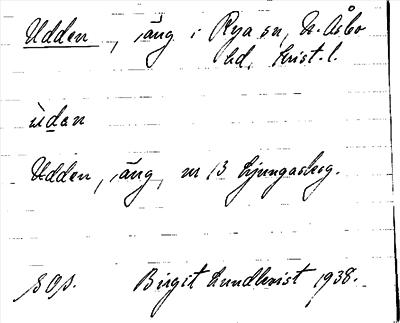 Udden, äng i Rya sn, N. Åsbo
hd, Krist. l.
ùdən
Udden, äng, nr 13 Ljungasbog.
SOS. Birgit Lundkvist 1938.